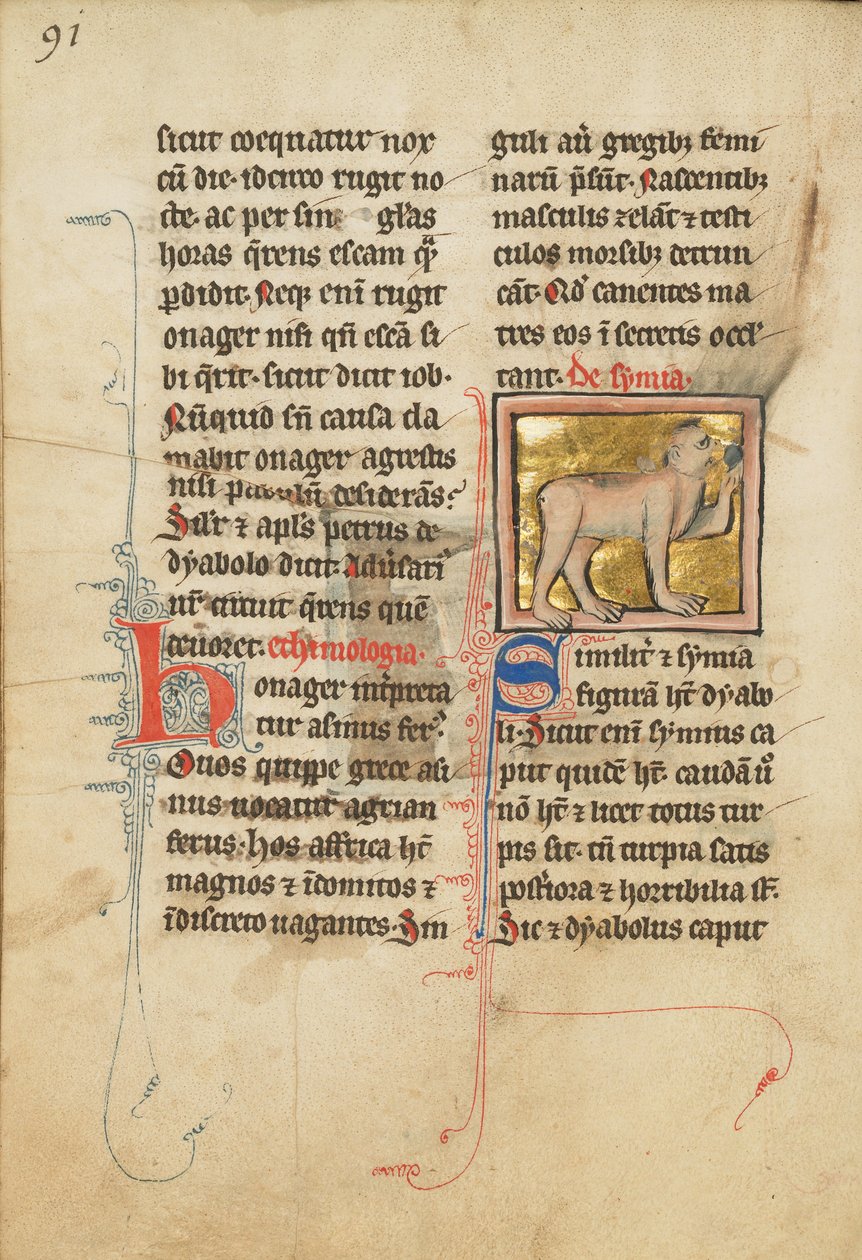 91
sicut coequatur nox
cū die· idcirco rugit no
cte· ac per sin gl'as
horas q̄rens escam q̄ᵃ
ꝑdidit· Neqꝫ eni rugit
onager nisi qn̄ escā si
bi q̄rit· sicut dicit iob·
Nūquid sn̄ causa cla
mabit onager agrestis
nisi pabulū desiderās?
Sil'r ⁊ apl's petrus de
dyabolo dicit· Adūsari᷒
ur̄ circuit q̄rens quē
deuoret· ethimologia·
honager int̄preta
tur asinus fer᷒·
Quos quippe grece asi
nus uocatur agrian
ferus· hos affrica hт̄
magnos ⁊ īdomitos ⁊
īdiscreto uagantes· Sin
guli aū gregibꝫ femi
narū p̄sūt· Nascentibꝫ
masculis zelāt ⁊ testi
culos morsibꝫ detrun
cāt· Qd᷒ canentes ma
tres eos ī secretis occl'
tant· De symia·
Similit᷒ ⁊ symia
figurā ht̄ dyabo
li· Sicut eni symius ca
put quidē ht̄· caudā uº
nō ht̄ ⁊ licet totus tur
pis sit· tn̄ turpia satis
post᷒iora ⁊ horribilia sť·
Sic ⁊ dyabolus caput